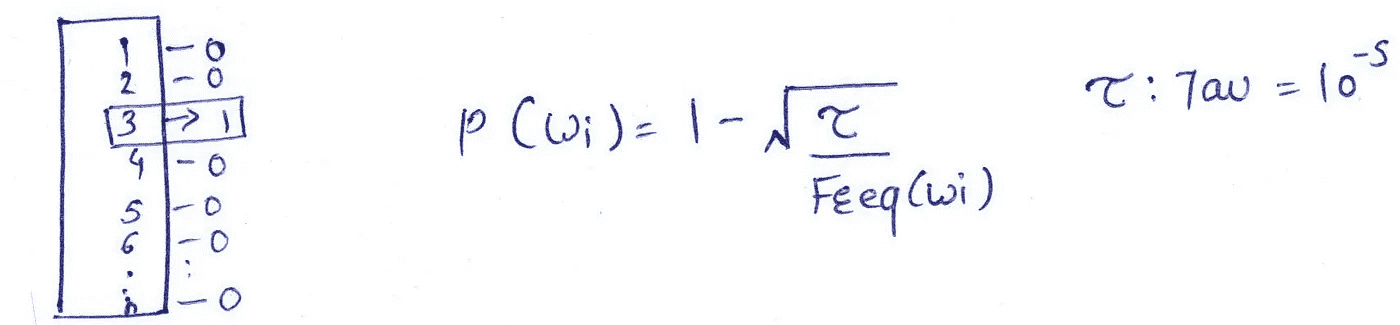 1 - 0
2 - 0
3 → 1
4 - 0
5 - 0
6 - 0
. :
n - 0
P(wi) = 1 - √(τ / Freq(wi))
τ : Tau = 10^-5